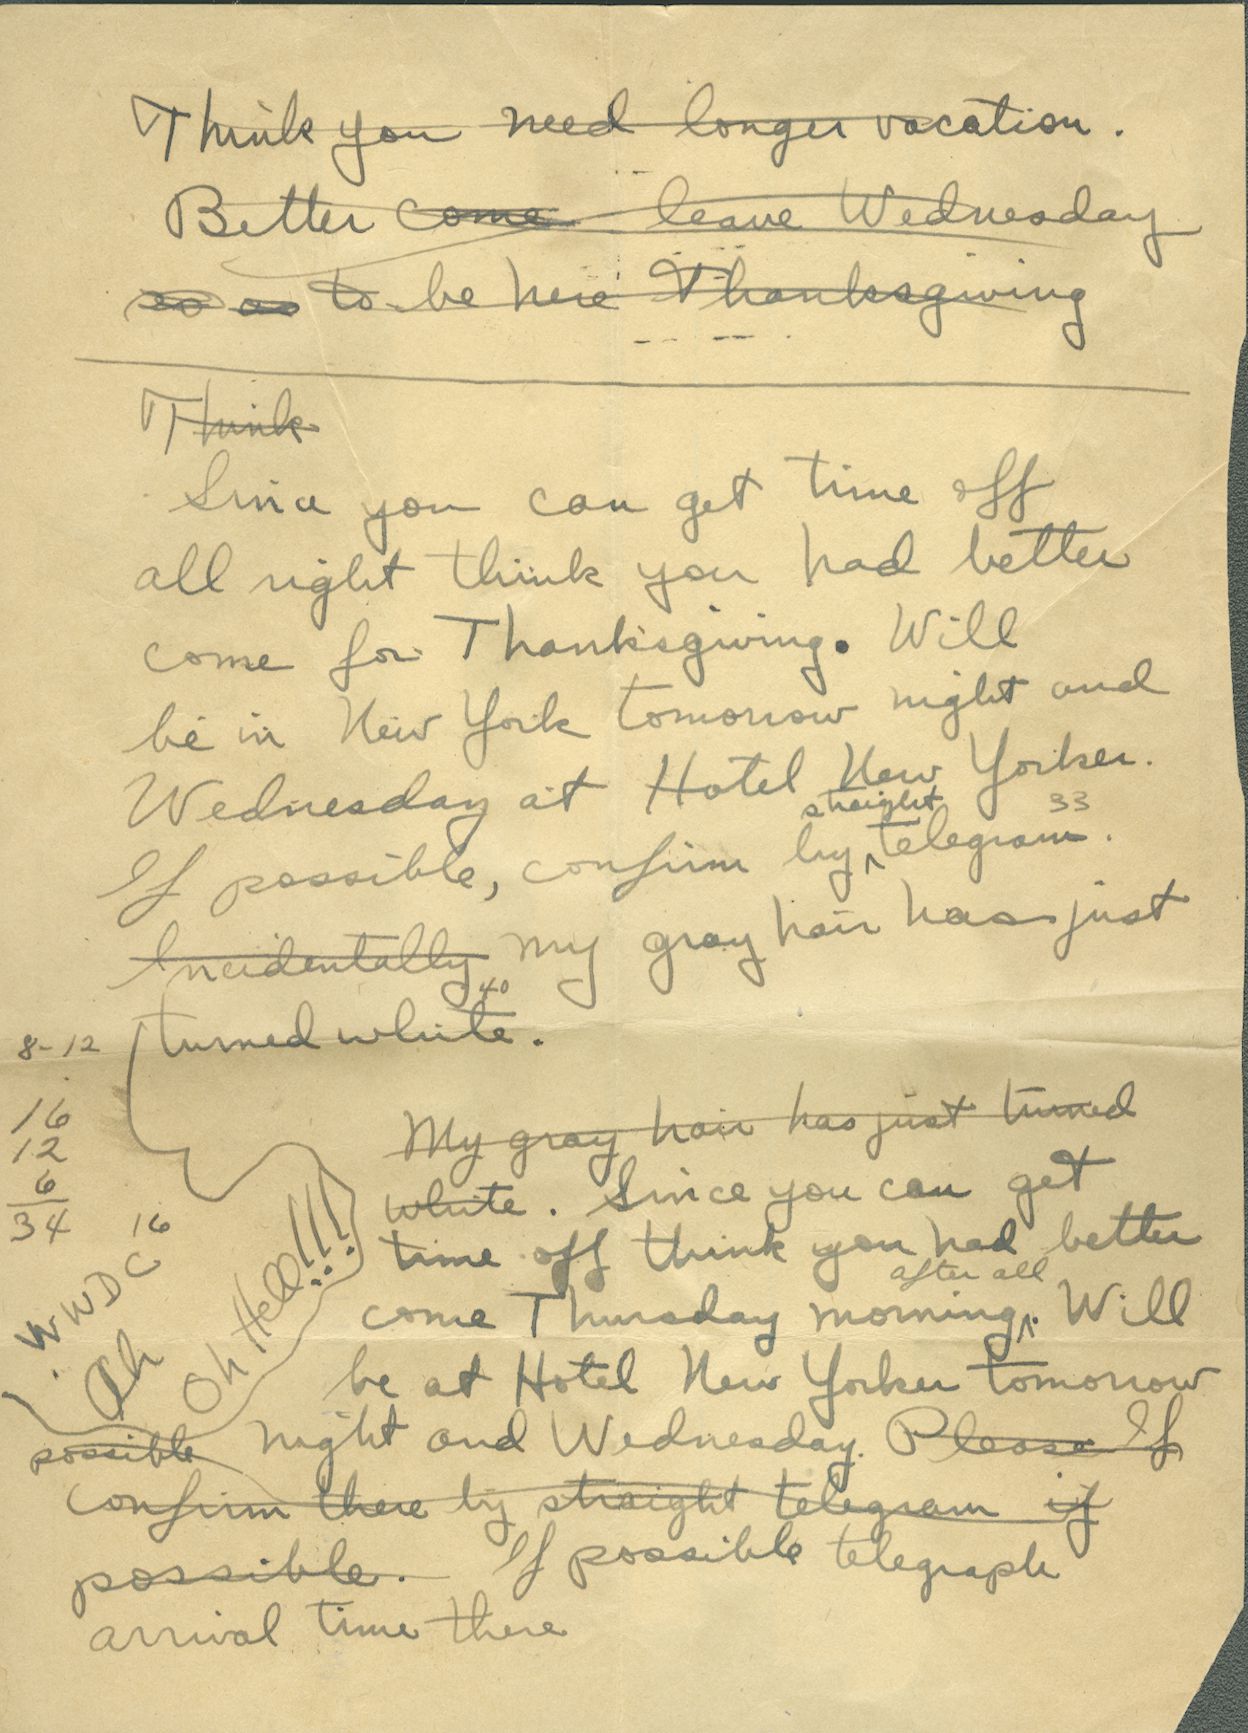 Think you need longer vacation.
Better come leave Wednesday
so as to be here Thanksgiving
Think
Since you can get time off
all right think you had better
come for Thanksgiving. Will
be in New York tomorrow night and
Wednesday at Hotel New Yorker.
straight 33
If possible, confirm by telegram.
Incidentally my gray hair has just
40
turned white.
8-12
16
12
6
34
16
My gray hair has just turned
white. Since you can get
time off think you had better
after all
come Thursday morning. Will
be at Hotel New Yorker tomorrow
night and Wednesday. Please If
possible
confirm there by straight telegram if
possible. If possible telegraph
arrival time there
WWDC
Ah
Oh Hell!!!